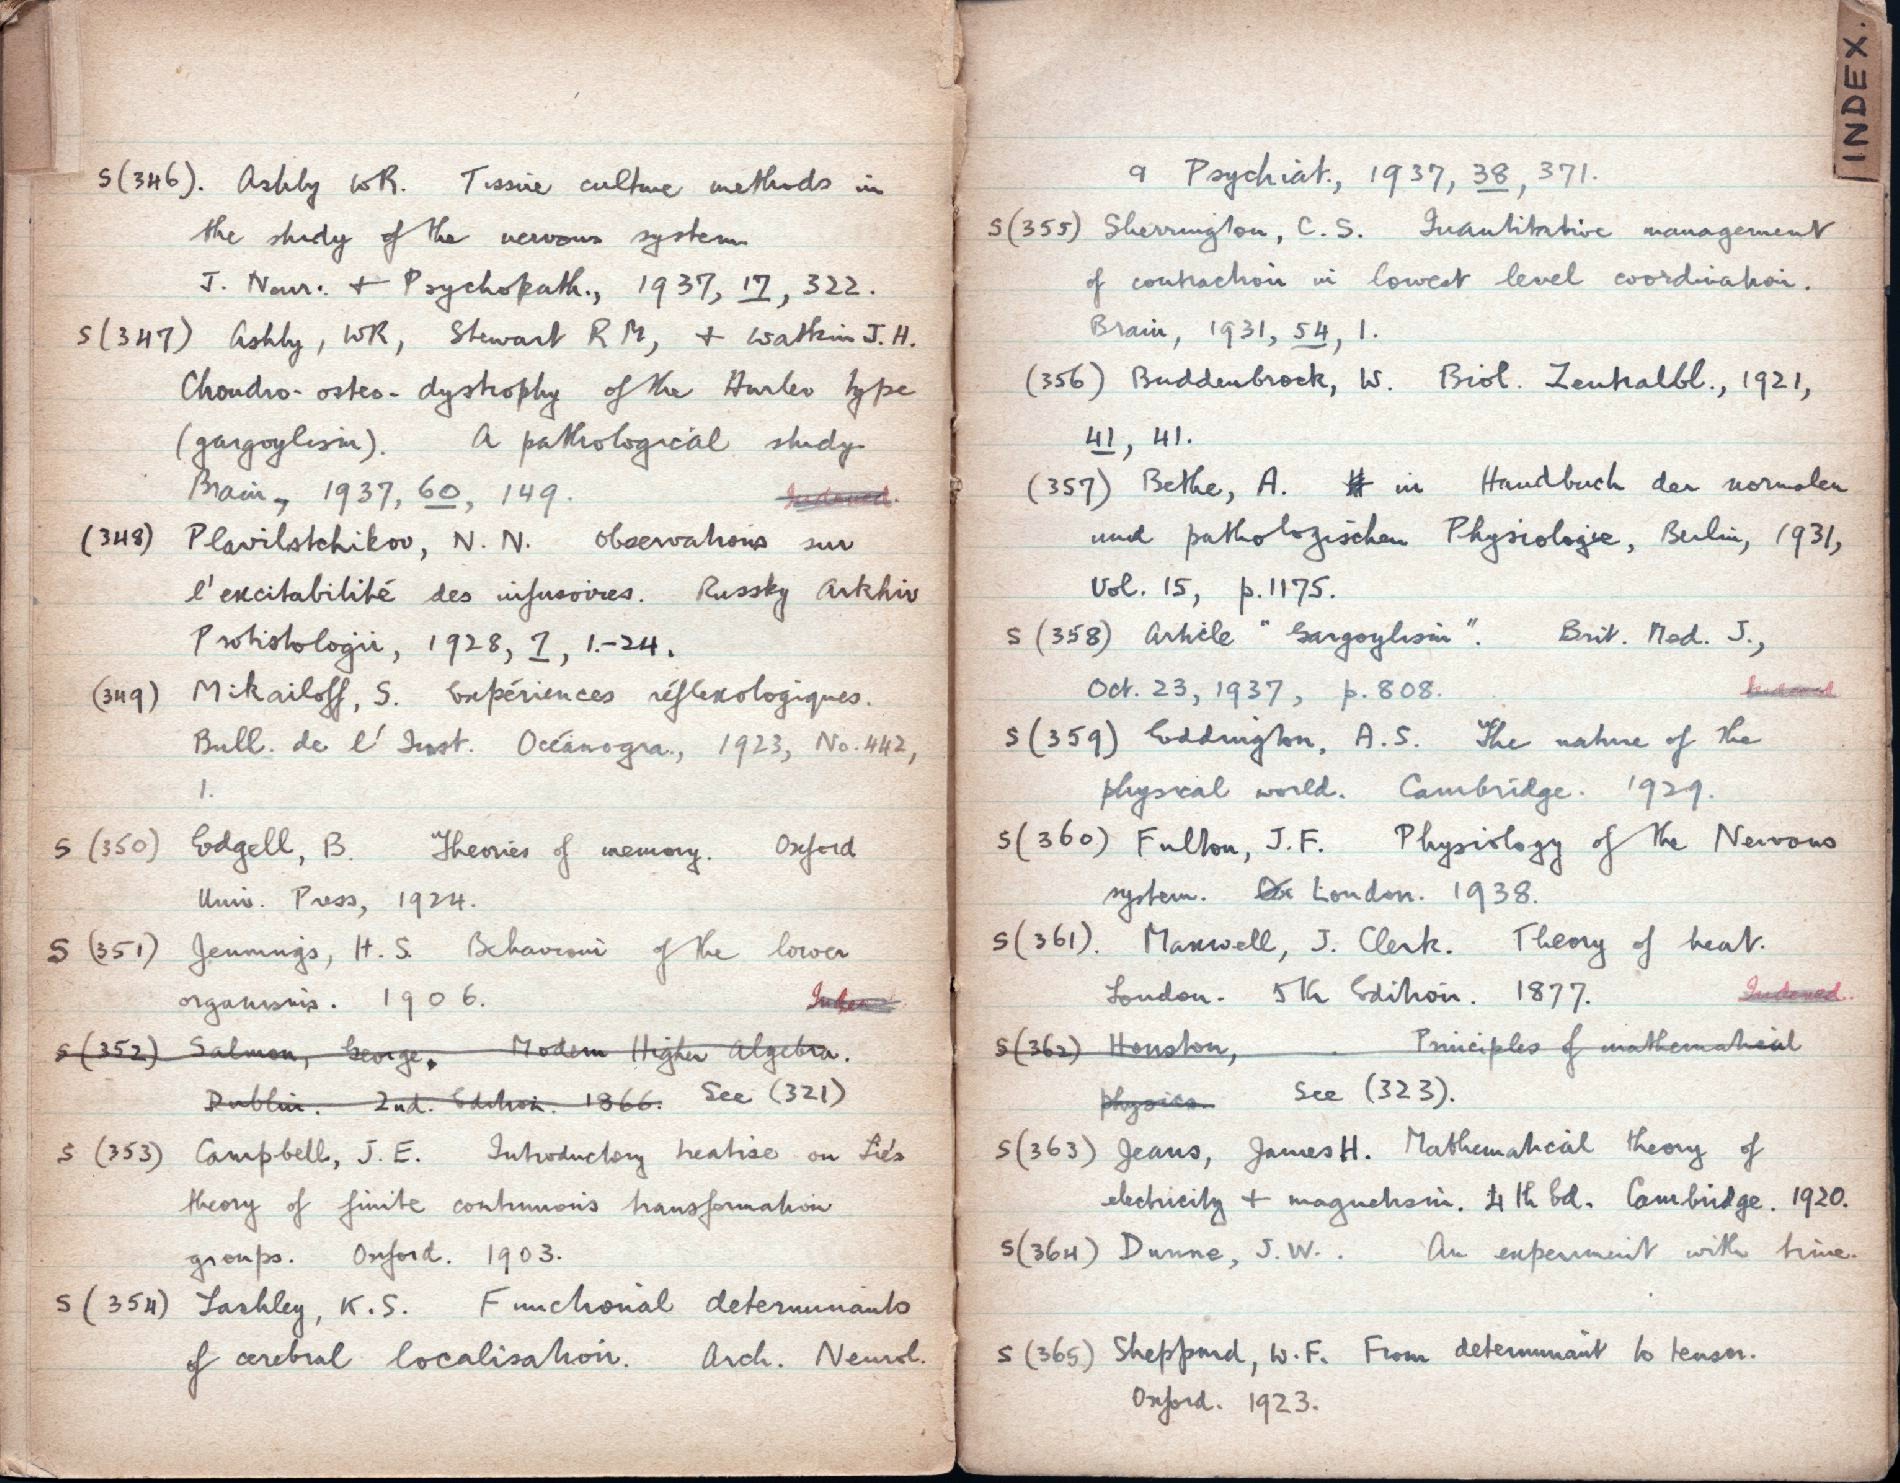 S(346). Ashby WR. Tissue culture methods in
the study of the nervous system
J. Neur. + Psychopath., 1937, 17, 322.
S(347) Ashby, WR, Stewart R M, + Watkin J.H.
Chondro-osteo-dystrophy of the Hurler type
(gargoylism). A pathological study.
Brain, 1937, 60, 149. Indexed.
(348) Plavilstchikov, N. N. Observations sur
l'excitabilité des infusoires. Russky Arkhiv
Protistologii, 1928, 7, 1.-24.
(349) Mikailoff, S. Expériences réflexologiques.
Bull. de l'Inst. Océanogra., 1923, No. 442,
1.
S (350) Edgell, B. Theories of memory. Oxford
Univ. Press, 1924.
S (351) Jennings, H. S. Behaviour of the lower
organisms. 1906. Index
S (352) Salmon, George. Modern Higher Algebra.
Dublin. 2nd. Edition. 1866. See (321)
S (353) Campbell, J. E. Introductory treatise on Lie's
theory of finite continuous transformation
groups. Oxford. 1903.
S (354) Lashley, K.S. Functional determinants
of cerebral localisation. Arch. Neurol.
INDEX.
a Psychiat., 1937, 38, 371.
S(355) Sherrington, C. S. Quantitative management
of contraction in lowest level coordination.
Brain, 1931, 54, 1.
(356) Buddenbrock, W. Biol. Zentralbl., 1921,
41, 41.
(357) Bethe, A. in Handbuch der normalen
und pathologischen Physiologie, Berlin, 1931,
Vol. 15, p. 1175.
S (358) Article "Gargoylism". Brit. Med. J.,
Oct. 23, 1937, p. 808. Indexed
S (359) Eddington, A.S. The nature of the
physical world. Cambridge. 1929.
S(360) Fulton, J.F. Physiology of the Nervous
system. Ox London. 1938.
S(361). Maxwell, J. Clerk. Theory of heat.
London. 5th Edition. 1877. Indexed.
S(362) Houston, Principles of mathematical
physics. See (323).
S(363) Jeans, James H. Mathematical theory of
electricity + magnetism. 4th Ed. Cambridge. 1920.
S(364) Dunne, J.W. . An experiment with time.
S (365) Sheppard, W.F. From determinant to tensor.
Oxford. 1923.